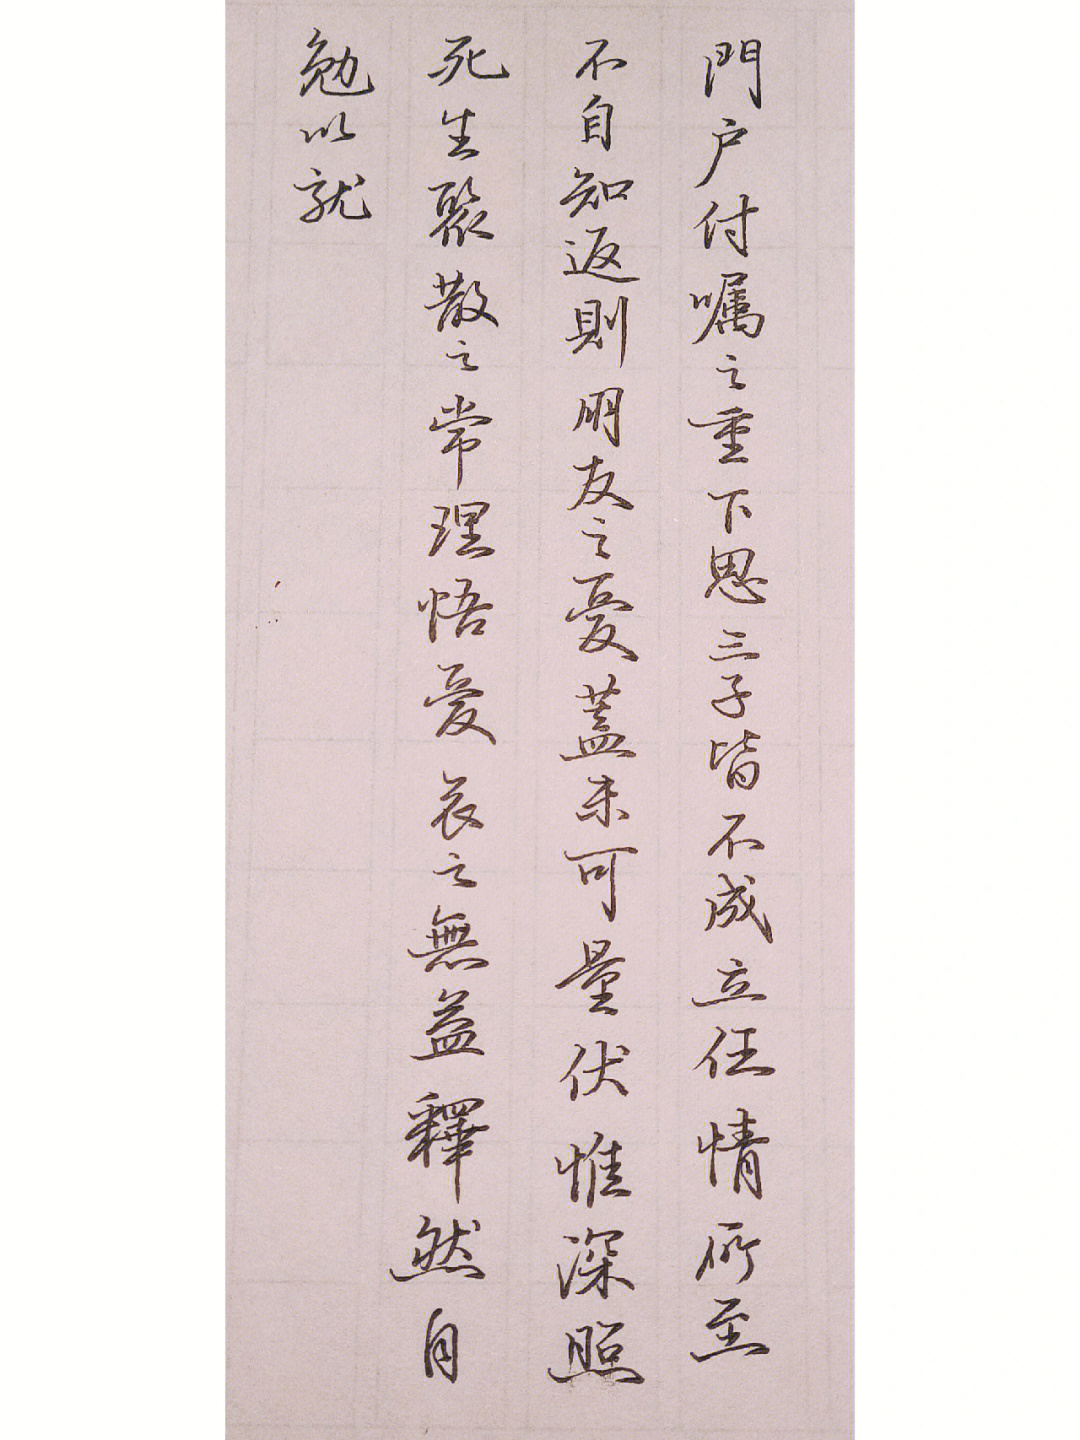 門户付嘱之重下思三子皆不成立任情所至
不自知返則朋友之憂蓋未可量伏惟深照
死生聚散之常理悟憂哀之無益釋然自
勉以就